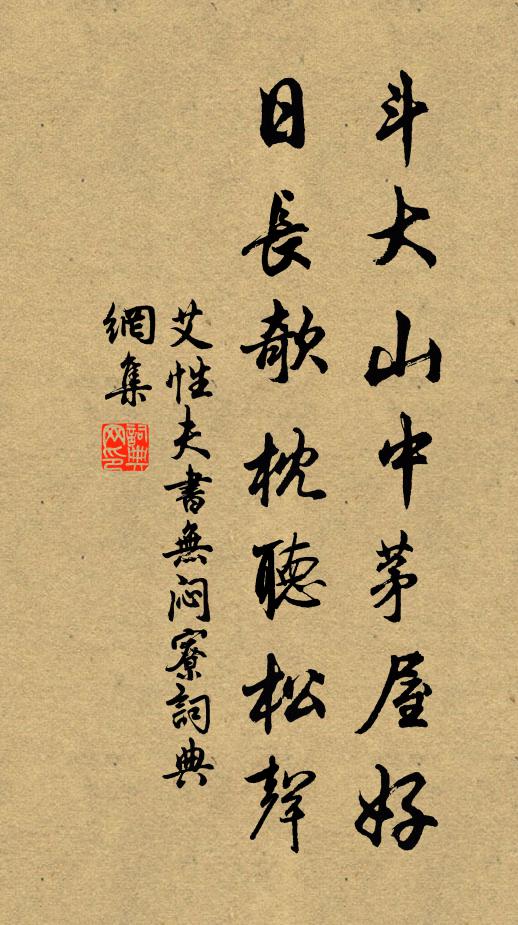 斗大山中茅屋好
日長欹枕聽松聲
艾性夫書無悶寮詞典
網集
詞典
网印